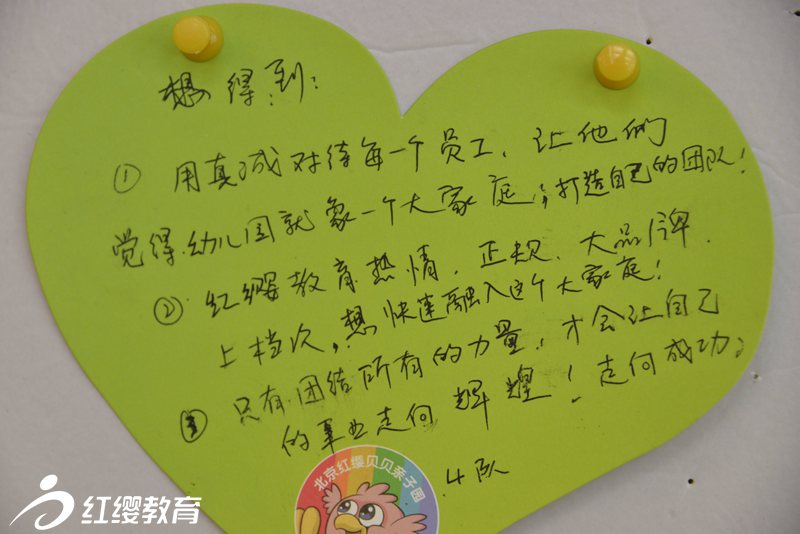 想得到：
① 用真减对待每一个员工、让他们
觉得幼儿园就象一个大家庭；打造自己的团队！
② 红缨教育热情、正规、大品牌、
上档次，想快速融入这个大家庭！
③ 只有团结所有的力量，才会让自己
的事业走向辉煌！走向成功。
4队
北京红缨贝贝亲子园
红缨教育